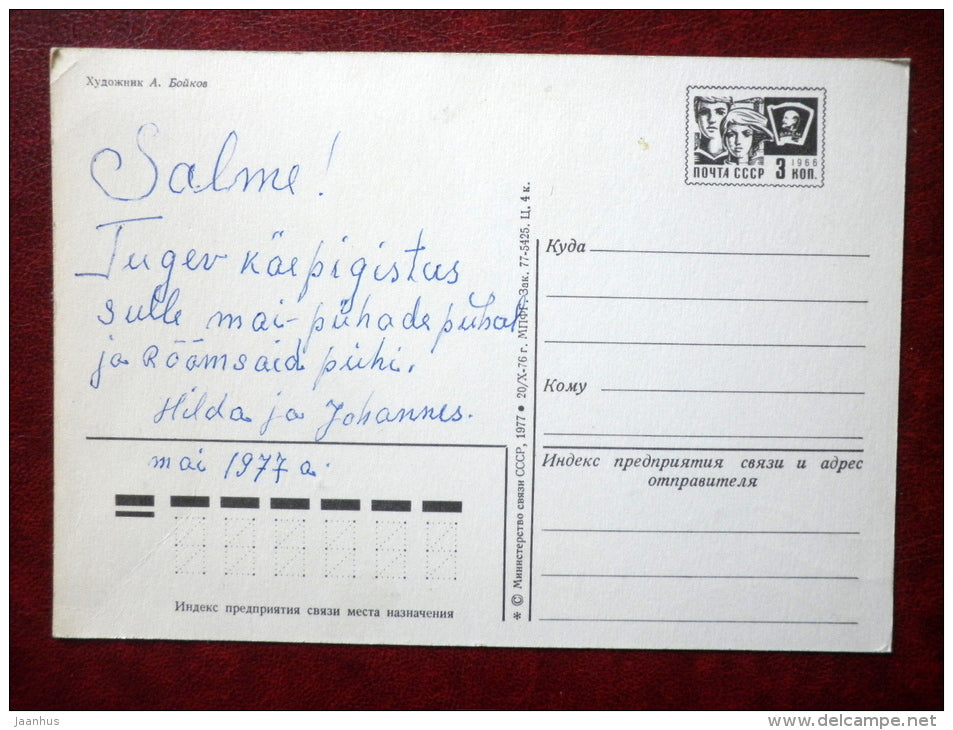 Художник А. Бойков
Salme!
Tugev käepigistus
sulle mai-pühade puhul
ja Rõõmsaid pühi.
Hilda ja Johannes.
mai 1977 a.
Индекс предприятия связи места назначения
* © Министерство связи СССР, 1977 ● 20/X-76 г. МПФГ. Зак. 77-5425. Ц. 4 к.
1966
ПОЧТА СССР 3 КОП.
Куда
Кому
Индекс предприятия связи и адрес
отправителя
Jaanhus
www.delcampe.net